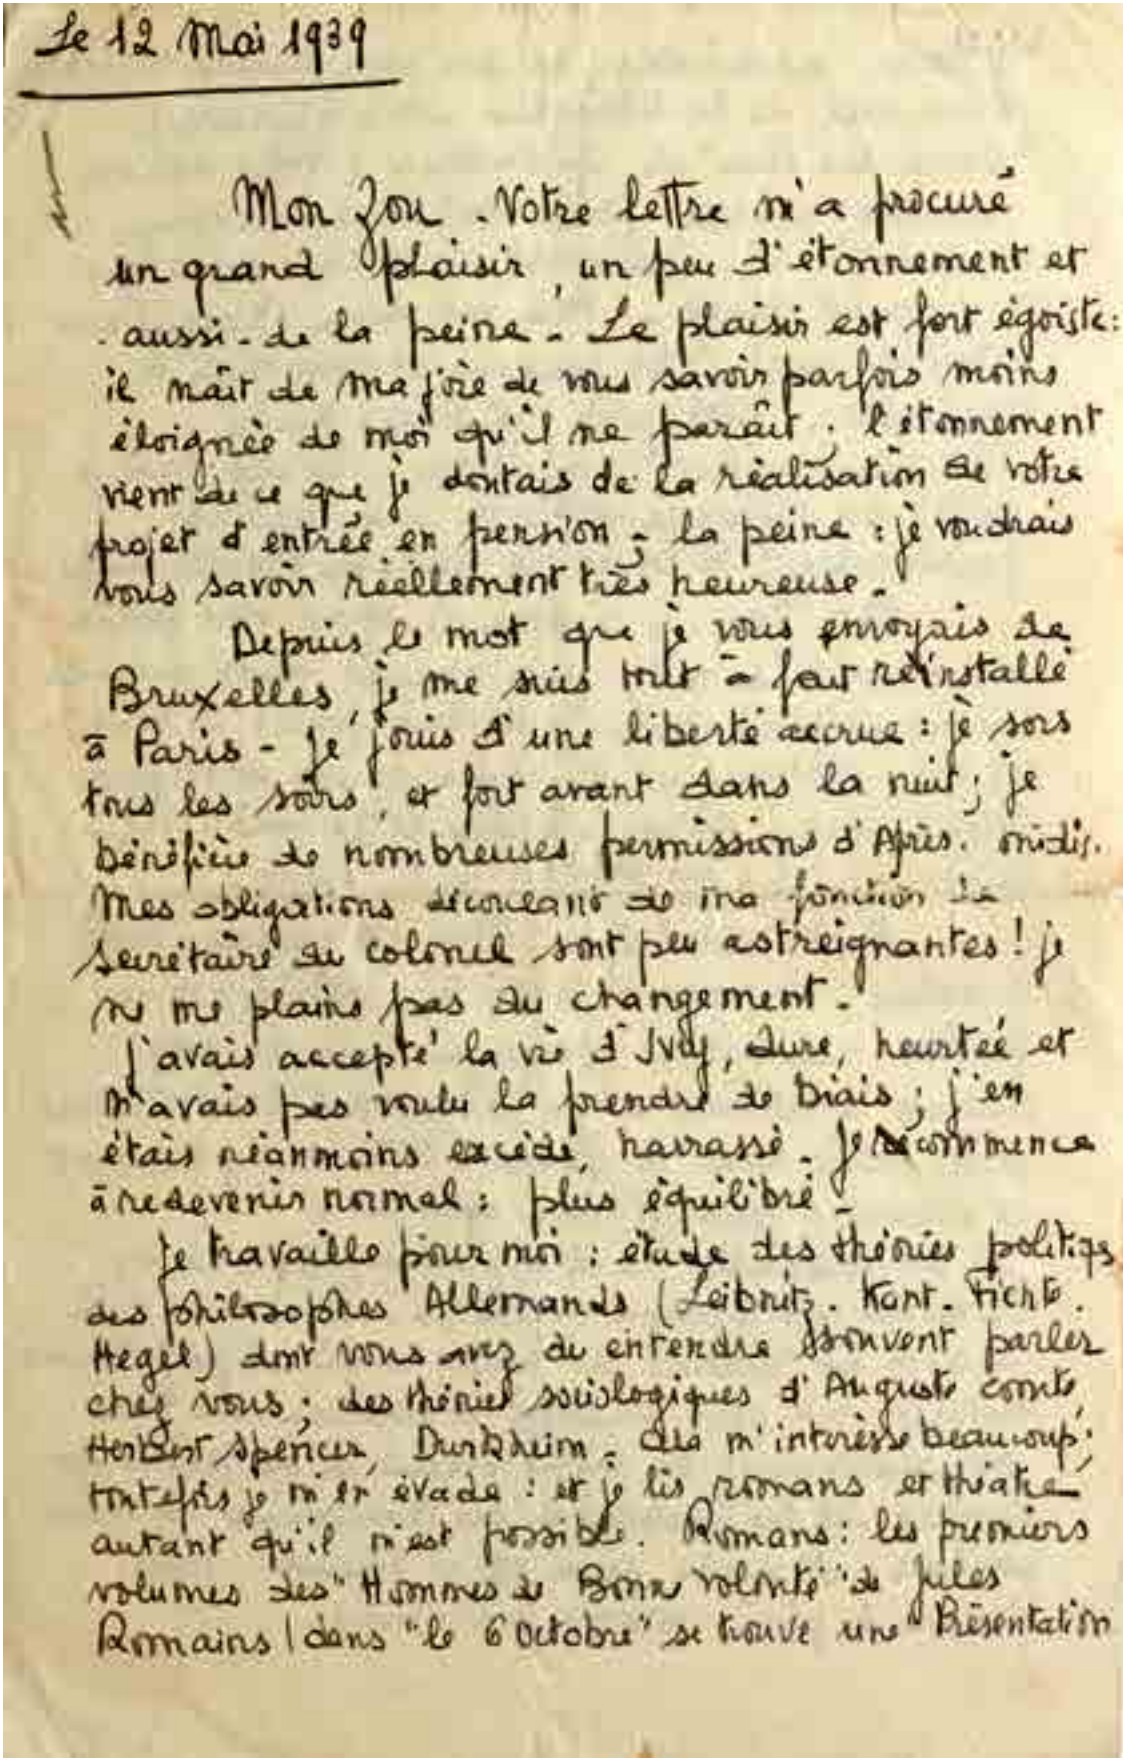 Le 12 Mai 1939
Mon Zou. Votre lettre m'a procuré
un grand plaisir, un peu d'étonnement et
aussi de la peine. Le plaisir est fort égoïste :
il naît de ma joie de vous savoir parfois moins
éloignée de moi qu'il ne paraît ; l'étonnement
vient de ce que je doutais de la réalisation de votre
projet d'entrée en pension ; la peine : je voudrais
vous savoir réellement très heureuse.
Depuis le mot que je vous envoyais de
Bruxelles, je me suis tout à fait réinstallé
à Paris - je jouis d'une liberté accrue : je sors
tous les soirs, et fort avant dans la nuit ; je
bénéficie de nombreuses permissions d'Après. midis.
Mes obligations découlant de ma fonction de
secrétaire du colonel sont peu astreignantes ! je
ne me plains pas du changement.
J'avais accepté la vie d'Ivry, dure, heurtée et
n'avais pas voulu la prendre de biais ; j'en
étais néanmoins excédé, harrassé. Je recommence
à redevenir normal : plus équilibré -
Je travaille pour moi : étude des théories politiqs
des philosophes Allemands (Leibnitz. Kant. Fichte.
Hegel) dont vous avez du entendre souvent parler
chez vous ; des théories sociologiques d'Auguste Comte,
Herbert Spencer, Durkheim. Cela m'intéresse beaucoup ;
toutefois je m'en évade : et je lis romans et théatre
autant qu'il m'est possible. Romans : les premiers
volumes des "Hommes de Bonne Volonté" de Jules
Romains (dans "le 6 Octobre" se trouve une "Présentation